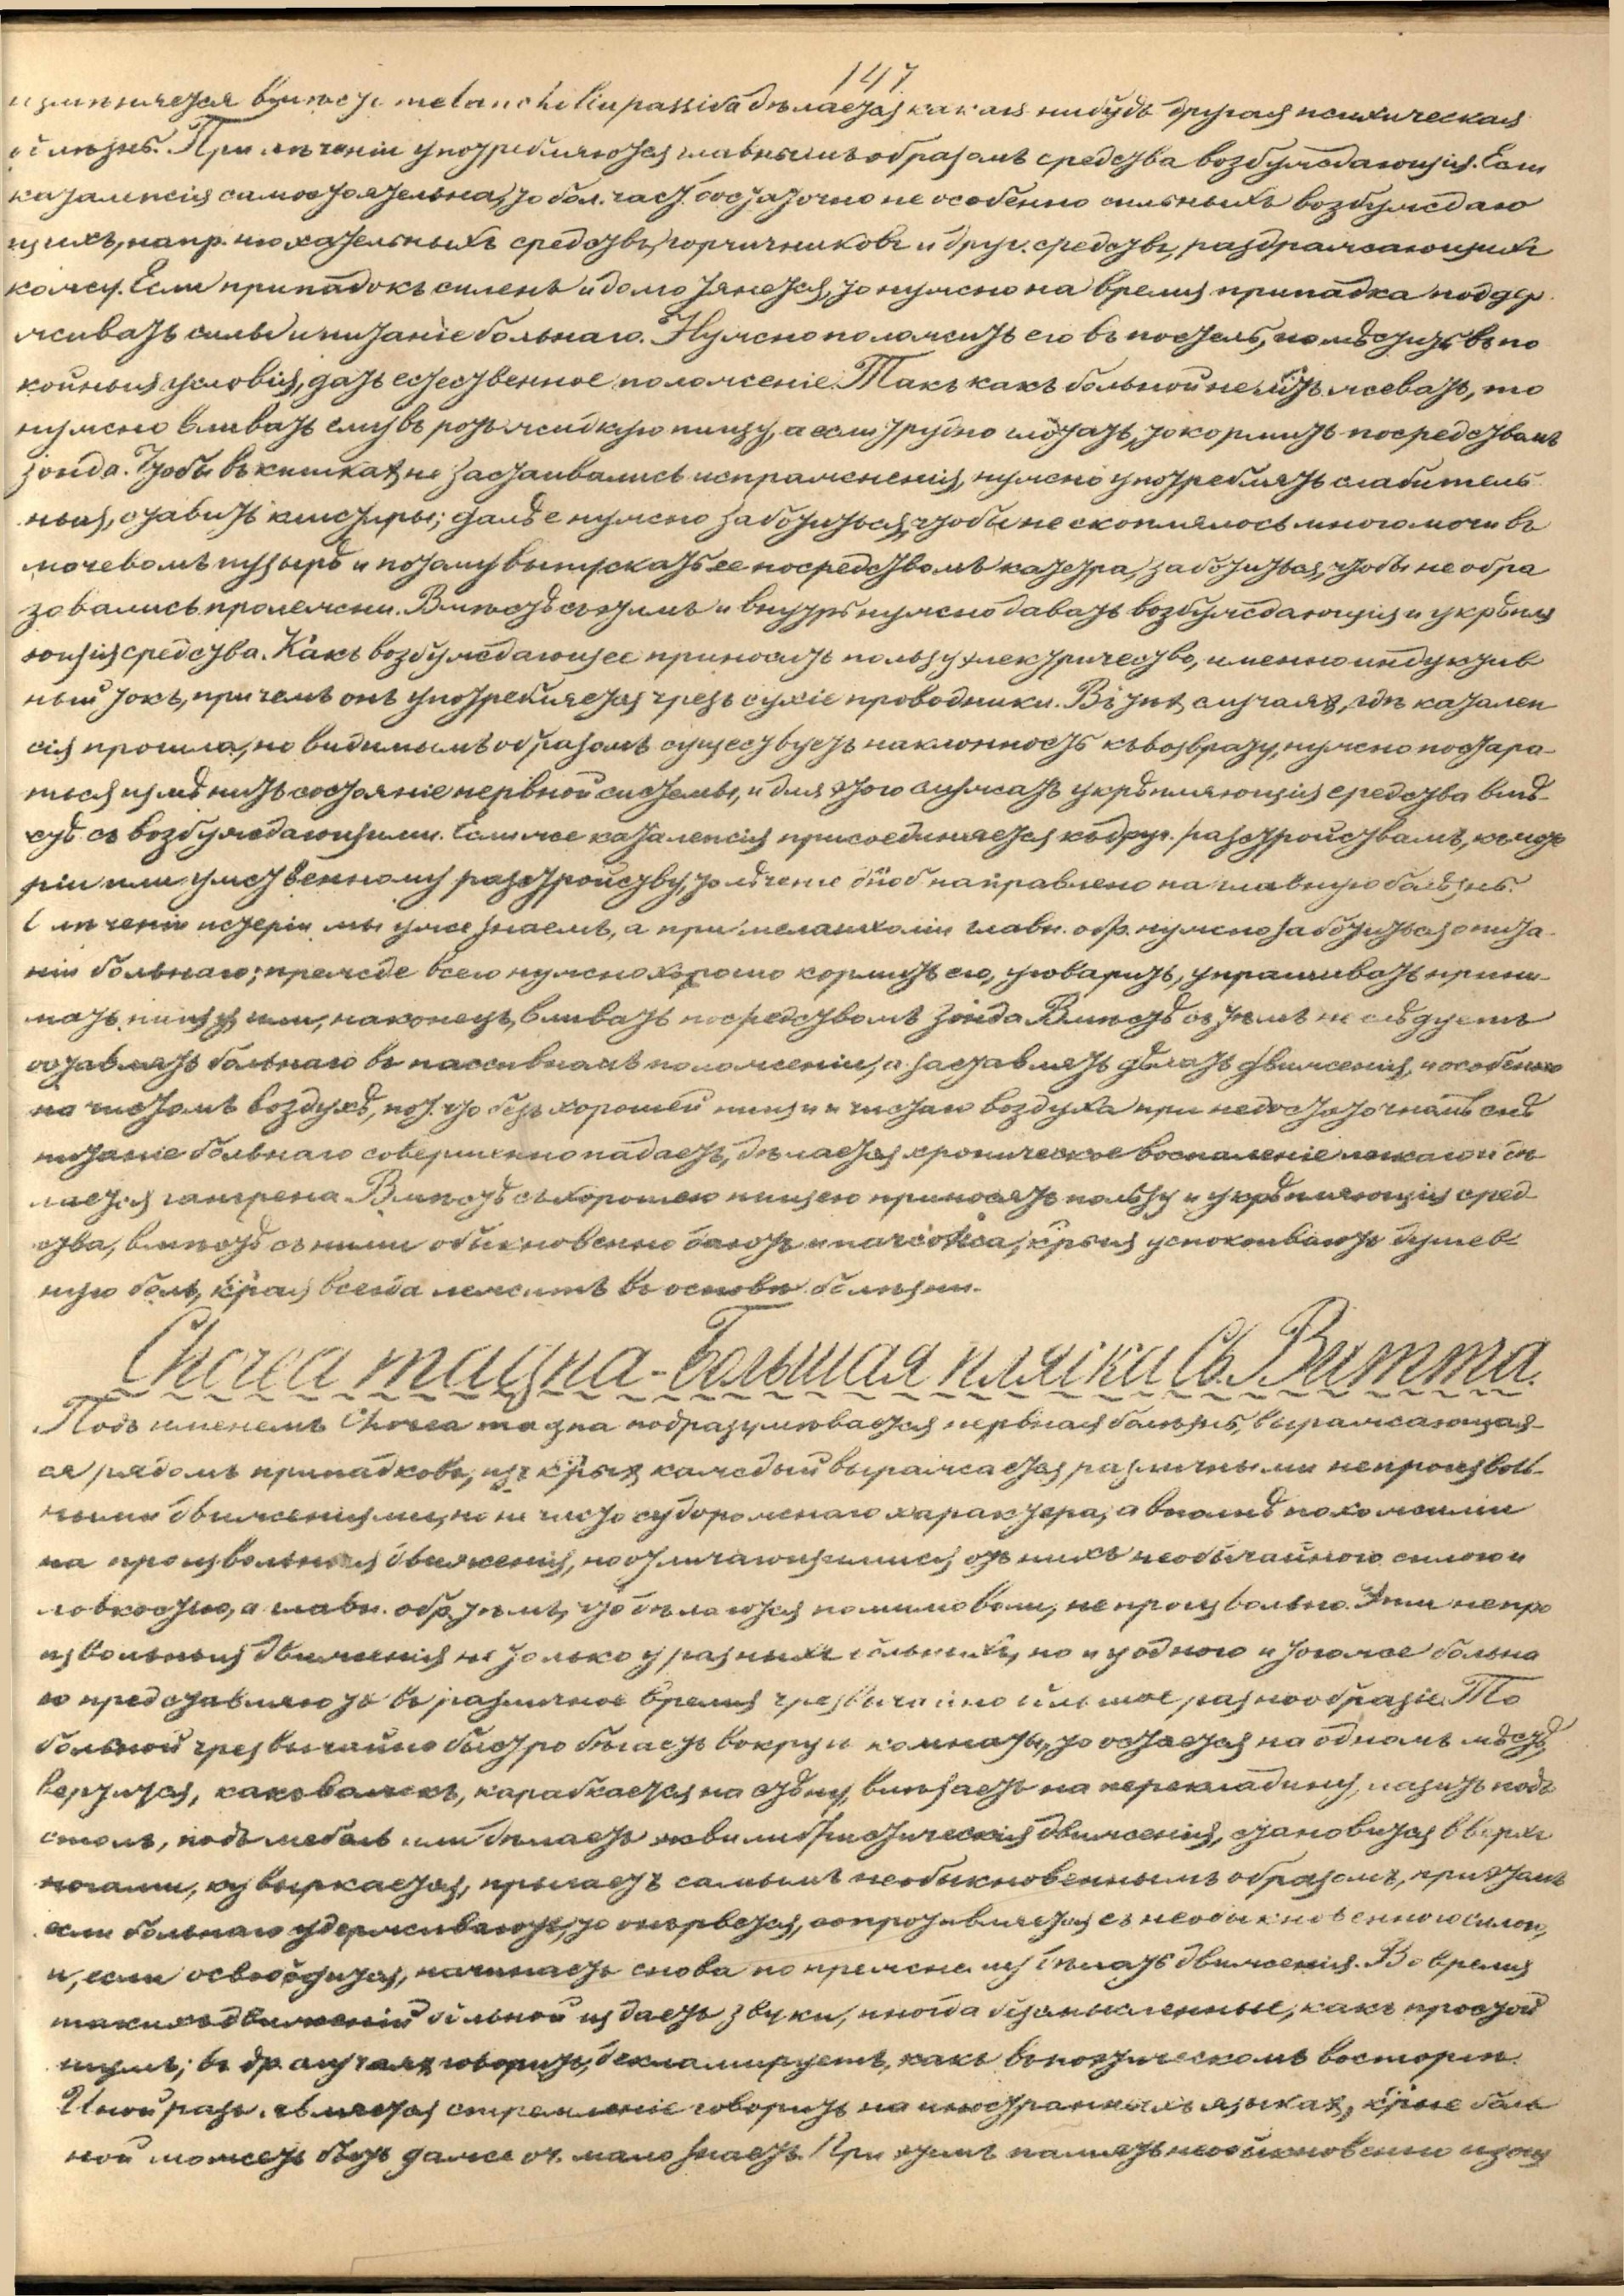 147
измѣняется вмѣсто melancholia passiva дѣлается какая нибудь другая психическая
болѣзнь. При лѣченіи употребляются главнымъ образомъ средства возбуждающія. Если
каталепсія самостоятельна, то бол. част. достаточно не особенно сильныхъ возбуждаю
щихъ, напр. нюхательныхъ средствъ, горчичниковъ и друг. средствъ, раздражающихъ
кожу. Если припадокъ силенъ и долго тянется, то нужно на время припадка поддер
живать силы и питаніе больнаго. Нужно положить его въ постель, помѣстить въ по
койныя условія, дать естественное положеніе. Такъ какъ больной не жевать, то
нужно вливать ему въ ротъ жидкую пищу, а если трудно глотать, то кормить посредствомъ
зонда. Чтобы въ кишкахъ не застаивались испражненія, нужно употреблять слабитель
ныя, ставить клистиры; далѣе нужно заботиться, чтобы не скоплялось много мочи въ
мочевомъ пузырѣ и потому выпускать ее посредствомъ катетра, заботиться, чтобы не обра
зовались пролежни. Вмѣстѣ съ этимъ и внутрь нужно давать возбуждающія и укрѣпля
ющія средства. Какъ возбуждающее приноситъ пользу электричество, именно индуктив
ный токъ, при чемъ онъ употребляется чрезъ сухіе проводники. Въ тѣхъ случаяхъ, гдѣ каталеп
сія прошла, но видимымъ образомъ существуетъ наклонность къ возврату, нужно постара-
ться измѣнить состояніе нервной системы, и для этого служатъ укрѣпляющія средства вмѣ-
стѣ съ возбуждающими. Если же каталепсія присоединяется къ друг. разстройствамъ, къ исте
ріи или умственному разстройству, то лѣченіе д. б. направлено на главную болѣзнь.
О лѣченіи истеріи мы уже знаемъ, а при меланхоліи главн. обр. нужно заботиться о пита-
ніи больнаго; прежде всего нужно хорошо кормить его, уговарить, упрашивать прини-
мать пищу или, наконецъ, вливать посредствомъ зонда. Вмѣстѣ съ тѣмъ не слѣдуетъ
оставлять больнаго въ пассивномъ положеніи, а заставлять дѣлать движенія, и особенно
на чистомъ воздухѣ, пот. что безъ хорошей пищи и чистаго воздуха при недостаточномъ снѣ
питаніе больнаго совершенно падаетъ, дѣлается хроническое воспаленіе легкаго и дѣ
лается гангрена. Вмѣстѣ съ хорошею пищею приносятъ пользу и укрѣпляющія сред-
ства, вмѣстѣ съ ними обыкновенно даютъ и narcotica, крыя успокоиваютъ душев-
ную боль, края всегда лежитъ въ основѣ болѣзни.
Chorea magna - Большая пляска Св. Витта.
Подъ именемъ Chorea magna подразумѣвается нервная болѣзнь, выражающая-
ся рядомъ припадковъ, изъ крыхъ каждый выражается различными непроизволь-
ными движеніями, но не чисто судорожнаго характера, а вполнѣ похожими
на произвольныя движенія, но отличающимися отъ нихъ необычайною силою и
ловкостью, а главн. обр. тѣмъ, что дѣлаются помимо воли, непроизвольно. Эти непро
извольныя движенія не только у разныхъ больныхъ, но и у одного и того же больна
го представляютъ въ различное время чрезвычайно большое разнообразіе. То
больной чрезвычайно быстро бѣгаетъ вокругъ комнаты, то остается на одномъ мѣстѣ,
вертится, какъ волчокъ, карабкается на стѣну, влѣзаетъ на перекладину, лазитъ подъ
столъ, подъ мебель или дѣлаетъ эквилибристическія движенія, становится вверхъ
ногами, кувыркается, прыгаетъ самымъ необыкновеннымъ образомъ, при этомъ
если больнаго удерживаютъ, то онъ рвется, сопротивляется съ необыкновенною силою,
и, если освободится, начинаетъ снова по прежнему дѣлать движенія. Во время
такихъ движеній больной издаетъ звуки, иногда безсмысленные, какъ простой
шумъ; въ др. случаяхъ говоритъ, декламируетъ, какъ въ поэтическомъ восторгѣ.
Иной разъ является стремленіе говорить на иностранныхъ языкахъ, крые боль
ной можетъ быть даже оч. мало знаетъ. При этомъ память необыкновенно изощ